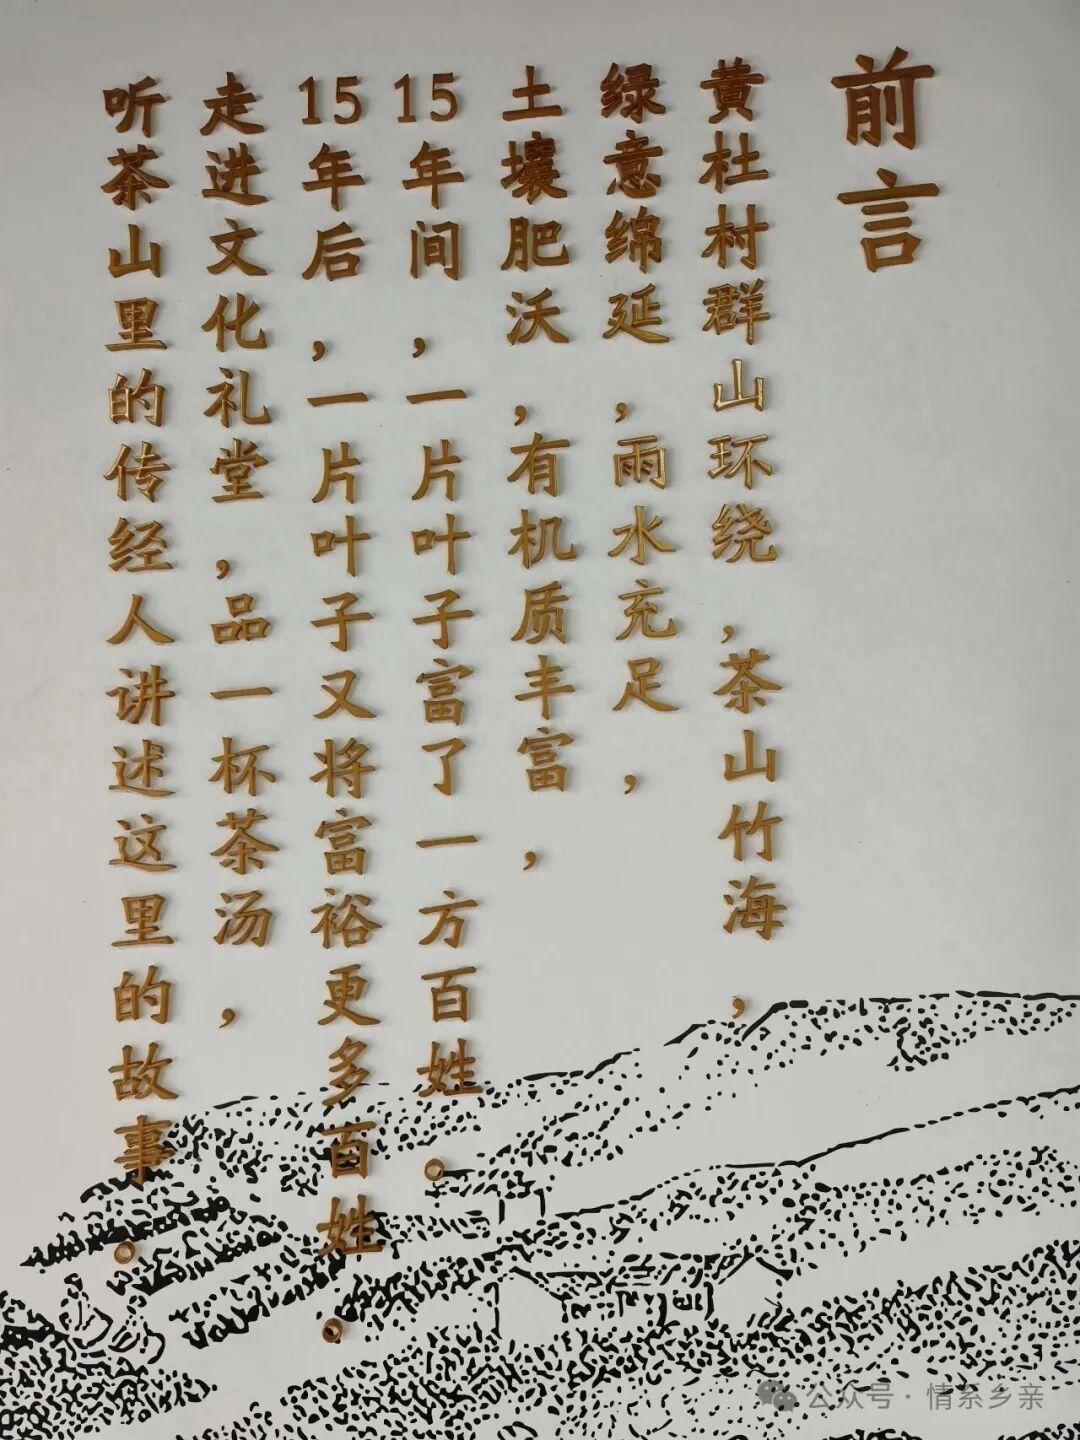 前言
黄杜村群山环绕，茶山竹海，
绿意绵延，雨水充足，
土壤肥沃，有机质丰富，
15年间，一片叶子富了一方百姓。
15年后，一片叶子又将富裕更多百姓。
走进文化礼堂，品一杯茶汤，
听茶山里的传经人讲述这里的故事。
公众号·情系乡亲